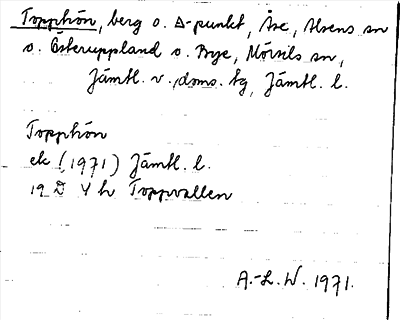 Topphön, berg o. Δ-punkt, Åse, Alsens sn
o. Österuppland o. Bye, Mörsils sn,
Jämtl. v. doms. tg, Jämtl. l.
Topphön
ek (1971) Jämtl. l.
19 D 4 h Toppvallen
A.-L. W. 1971.